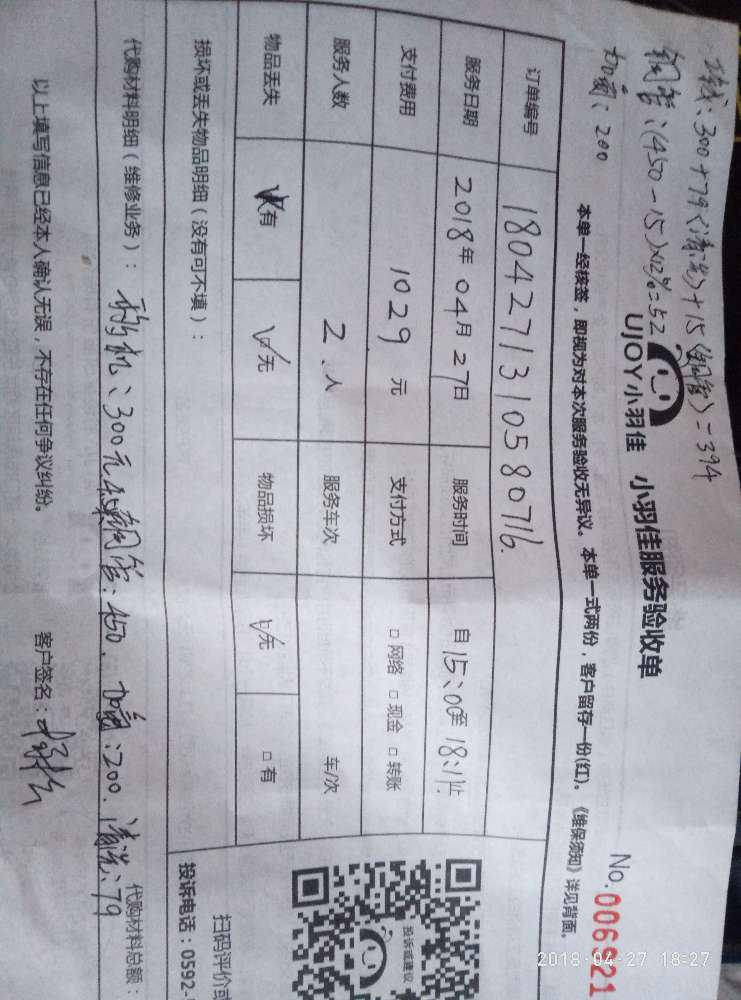 移机：300+79(清洗)+15(铜管)=394
铜管：(450-15)×12%=52
加氟：200
UJOY小羽佳 小羽佳服务验收单
No.006921
本单一经核签，即视为对本次服务验收无异议。本单一式两份，客户留存一份(红)。《维保须知》详见背面。
订单编号 1804271310580716
服务日期 2018年04月27日 服务时间 自15:00至18:11止
支付费用 1029元 支付方式 □网络 □现金 □转账
服务人数 2人 服务车次 车/次
物品丢失 □有 ☑无 物品损坏 ☑无 □有
损坏或丢失物品明细（没有可不填）：
代购材料明细（维修业务）：移机：300元 铜管：450、加氟：200、清洗：79 代购材料总额：
以上填写信息已经本人确认无误，不存在任何争议纠纷。 客户签名：
投诉或建议
扫码评价或
投诉电话：0592-
2018-04-27 18:27